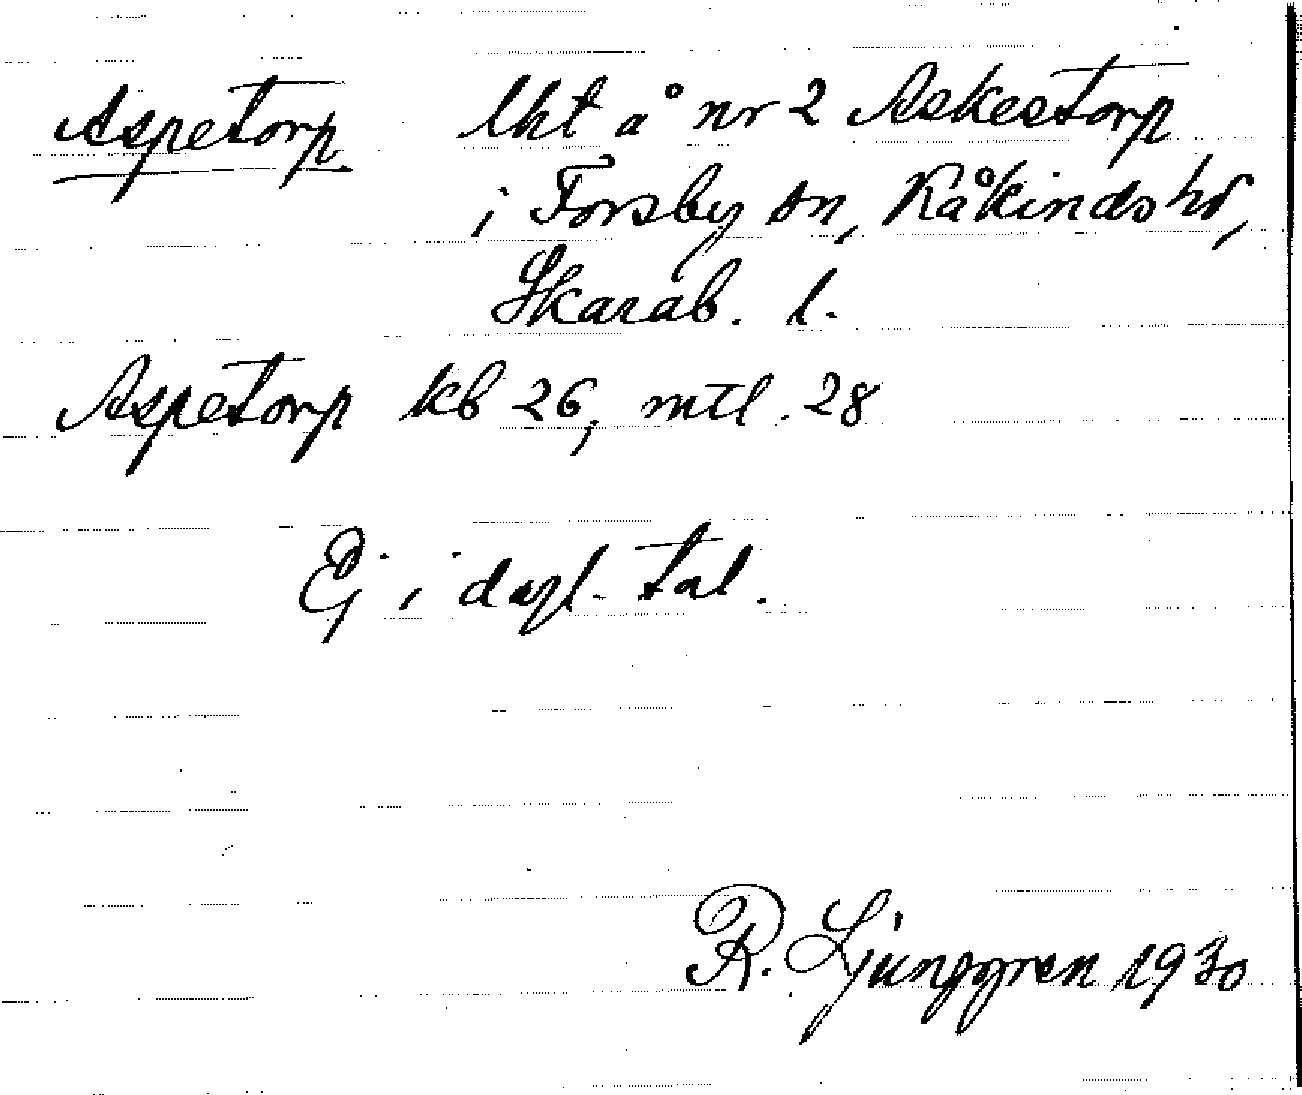 Aspetorp lht å nr 2 Askestorp
i Forsby sn, Kåkinds hd,
Skarab. l.
Aspetorp kb 26, mtl. 28
Ej i dagl. tal.
R. Ljunggren 1930